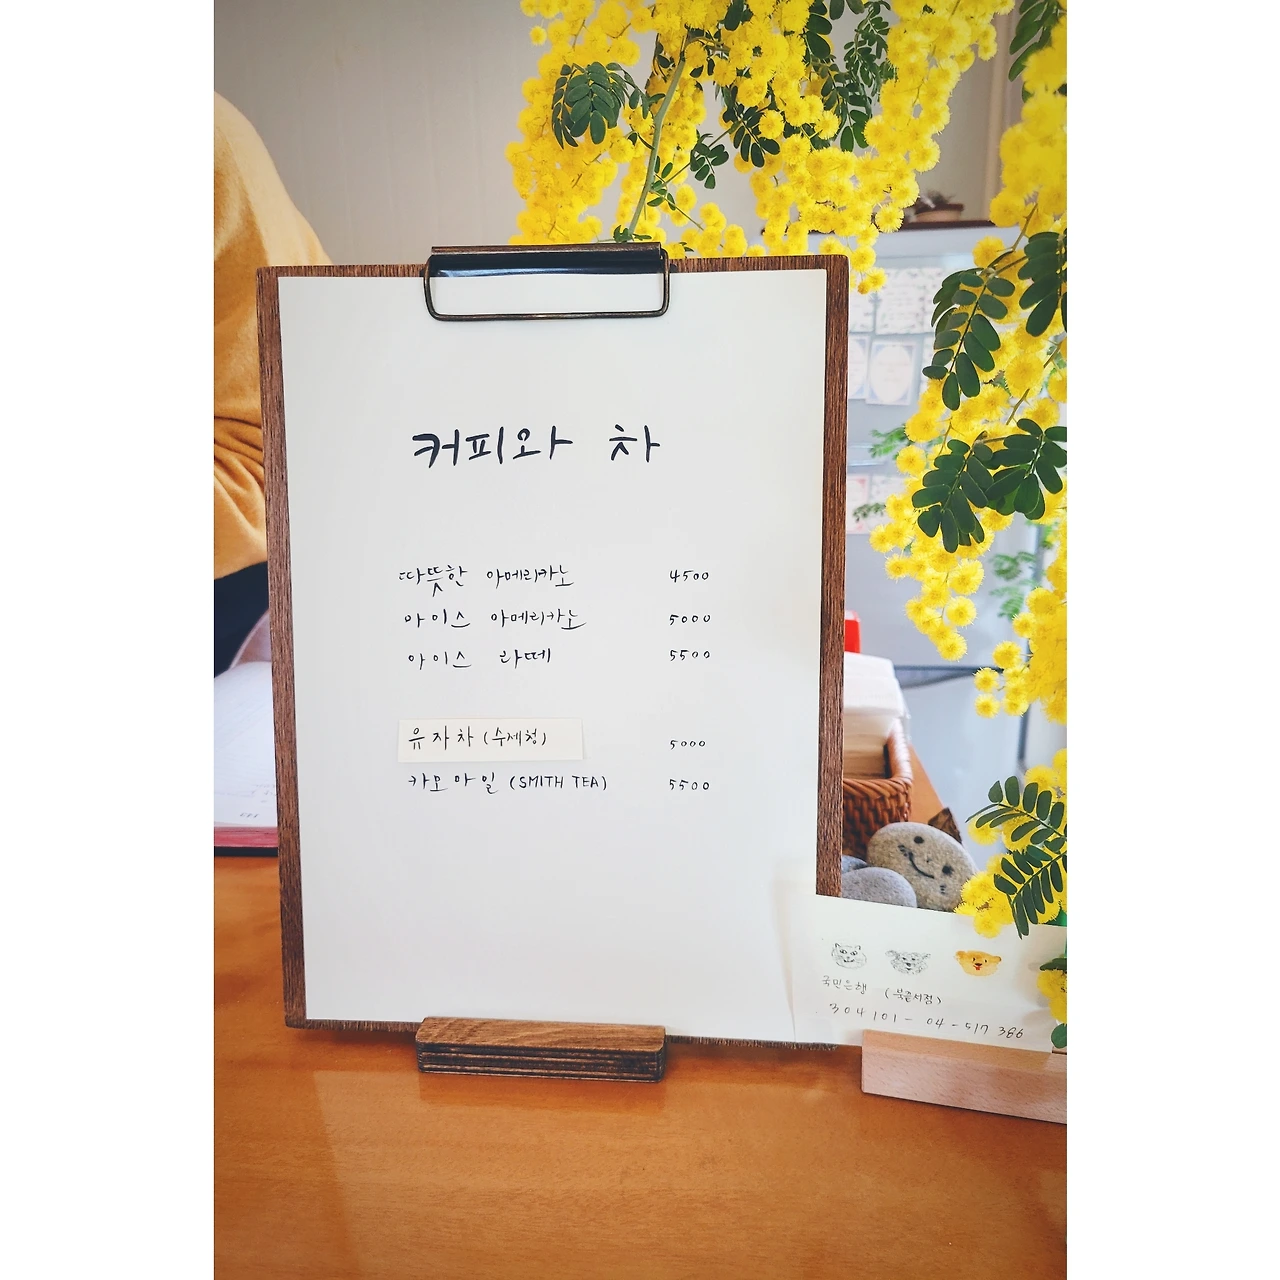 커피와 차
따뜻한 아메리카노 4500
아이스 아메리카노 5000
아이스 라떼 5500
유자차 (수제청) 5000
카모마일 (SMITH TEA) 5500
국민은행 (북끝서점)
304101-04-517386